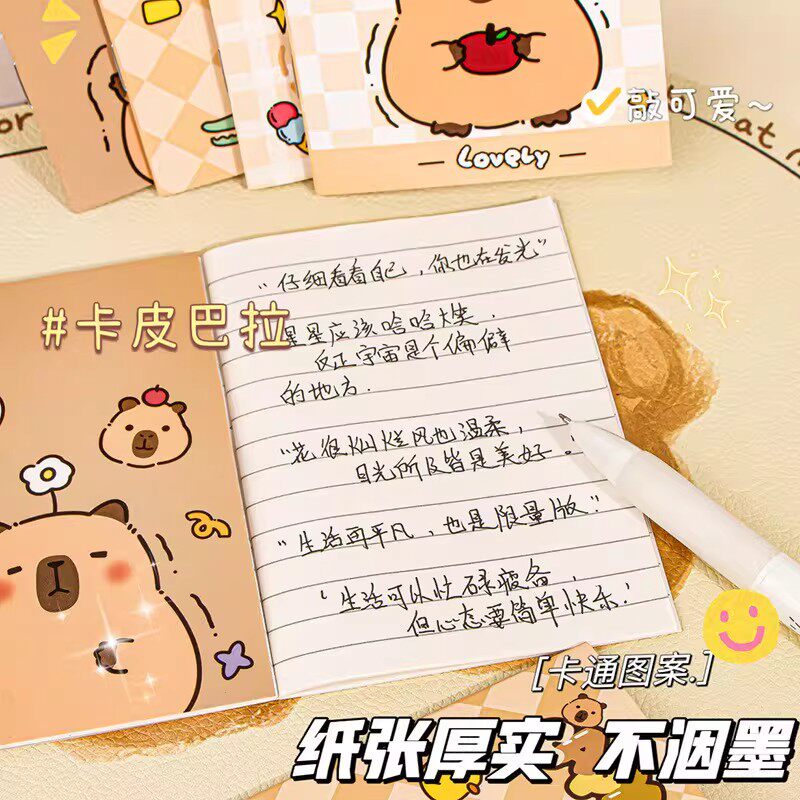 敲可爱~
at
or
Lovely
#卡皮巴拉
“仔细看看自己,你也在发光”
星星应该哈哈大笑,
反正宇宙是个偏僻
的地方.
“花很灿烂风也温柔,
目光所及皆是美好!
“生活再平凡,也是限量版”
‘生活可以忙碌疲惫,
但心态要简单快乐!
[卡通图案.]
纸张厚实 不洇墨